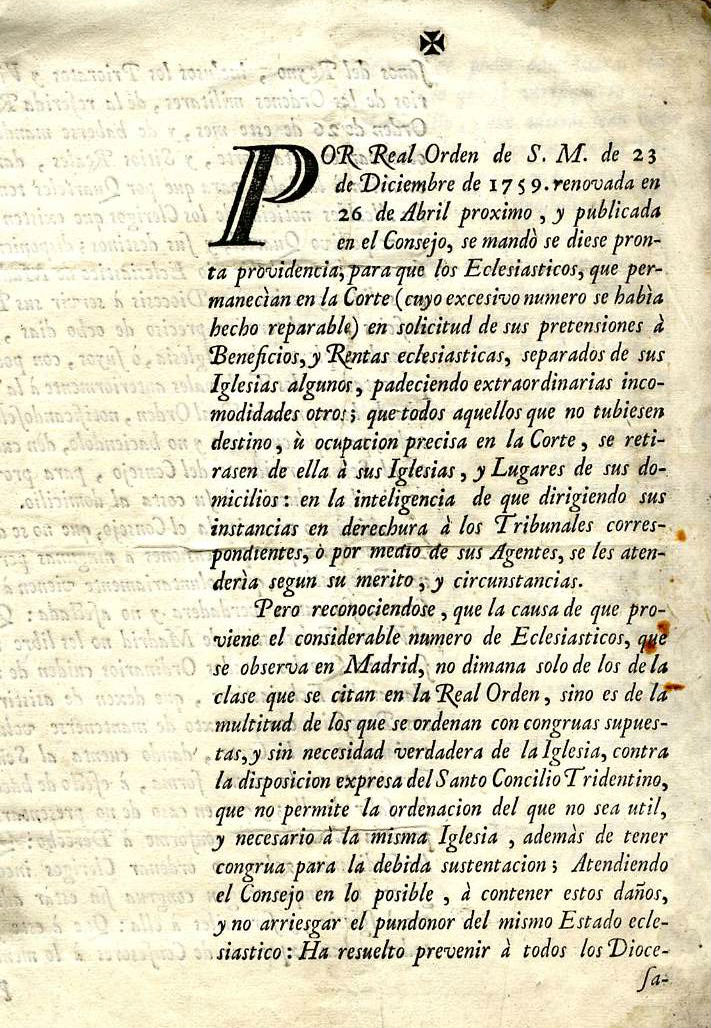 ✠
POR Real Orden de S. M. de 23
de Diciembre de 1759. renovada en
26 de Abril proximo, y publicada
en el Consejo, se mandò se diese pron-
ta providencia, para que los Eclesiasticos, que per-
manecìan en la Corte (cuyo excesivo numero se habìa
hecho reparable) en solicitud de sus pretensiones à
Beneficios, y Rentas eclesiasticas, separados de sus
Iglesias algunos, padeciendo extraordinarias inco-
modidades otros; que todos aquellos que no tubiesen
destino, ù ocupacion precisa en la Corte, se reti-
rasen de ella à sus Iglesias, y Lugares de sus do-
micilios: en la inteligencia de que dirigiendo sus
instancias en derechura à los Tribunales corres-
pondientes, ò por medio de sus Agentes, se les aten-
derìa segun su merito, y circunstancias.
Pero reconociendose, que la causa de que pro-
viene el considerable numero de Eclesiasticos, que
se observa en Madrid, no dimana solo de los de la
clase que se citan en la Real Orden, sino es de la
multitud de los que se ordenan con congruas supues-
tas, y sin necesidad verdadera de la Iglesia, contra
la disposicion expresa del Santo Concilio Tridentino,
que no permite la ordenacion del que no sea util,
y necesario à la misma Iglesia, ademàs de tener
congrua para la debida sustentacion; Atendiendo
el Consejo en lo posible, à contener estos daños,
y no arriesgar el pundonor del mismo Estado ecle-
siastico: Ha resuelto prevenir à todos los Dioce-
sa-